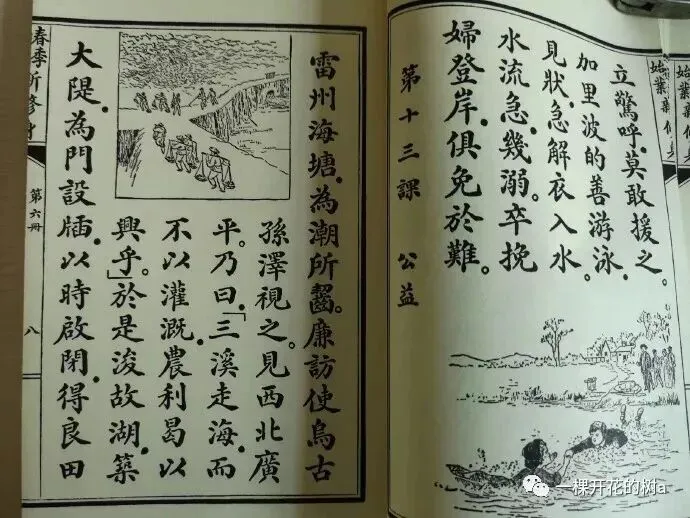 立驚呼。莫敢援之。
加里波的善游泳。
見狀。急解衣入水。
水流急。幾溺。卒挽
婦登岸。俱免於難。
第十三課 公益
雷州海塘。為潮所齧。廉訪使烏古
孫澤視之。見西北廣
平。乃曰。「三溪走海。而
不以灌溉。農利曷以
興乎。」於是浚故湖。築
大隄。為門設牐。以時啟閉。得良田
第六冊
八
一棵开花的树a